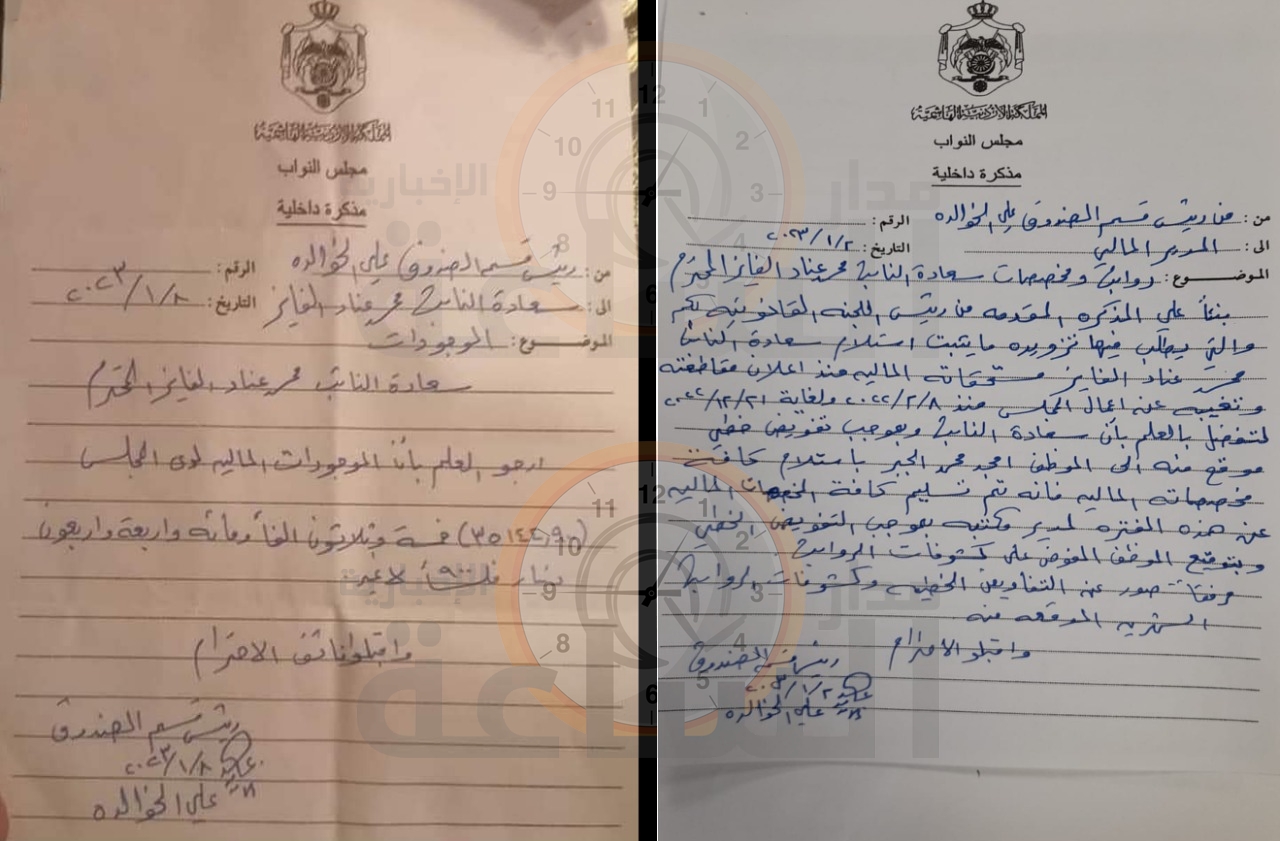 المملكة الأردنية الهاشمية
مجلس النواب
مذكرة داخلية
من : من رئيس قسم الصندوق علي الخوالده
الرقم :
الى : المدير المالي
التاريخ : ٢٠٢٣/١/٢
الموضوع : رواتب ومخصصات سعادة النائب محمد عناد الفايز المحترم
بناءً على المذكره المقدمه من رئيس اللجنه القانونيه لكم
والتي يطلب فيها تزويده ما يثبت استلام سعادة النائب
محمد عناد الفايز مستحقاته الماليه منذ اعلان مقاطعته
وتغيبه عن اعمال المجلس منذ ٢٠٢٢/٢/٨ ولغاية ٢٠٢٢/١٢/٣١
لتتفضل بالعلم بأن سعادة النائب وبموجب تفويض خطي
موقع منه الى الموظف امجد محمد الجبر باستلام كافة
مخصصاته الماليه فانه تم تسليم كافة المخصصات الماليه
عن هذه الفتره لمدير مكتبه بموجب التفويض الخطي
وبتوقيع الموظف المفوض على كشوفات الرواتب.
مرفقاً صور عن التفاويض الخطيه وكشوفات الرواتب
الشهريه الموقعه منه
واقبلو الاحترام
رئيس قسم الصندوق
٢٠٢٣/١/٢
علي الخوالده
المملكة الأردنية الهاشمية
مجلس النواب
مذكرة داخلية
من : رئيس قسم الصندوق علي الخوالده
الرقم :
الى : سعادة النائب محمد عناد الفايز
التاريخ : ٢٠٢٣/١/٨
الموضوع : الموجودات
سعادة النائب محمد عناد الفايز المحترم
ارجو العلم بأن الموجودات الماليه لدى المجلس
(٣٥١٤٤,٩٠) خمسة وثلاثون الفاً ومائه واربعة واربعون
دينار ٩٠٠ فلساً لا غير
واقبلو فائق الاحترام
رئيس قسم الصندوق
٢٠٢٣/١/٨
علي الخوالده
مدار
الساعة
الإخبارية